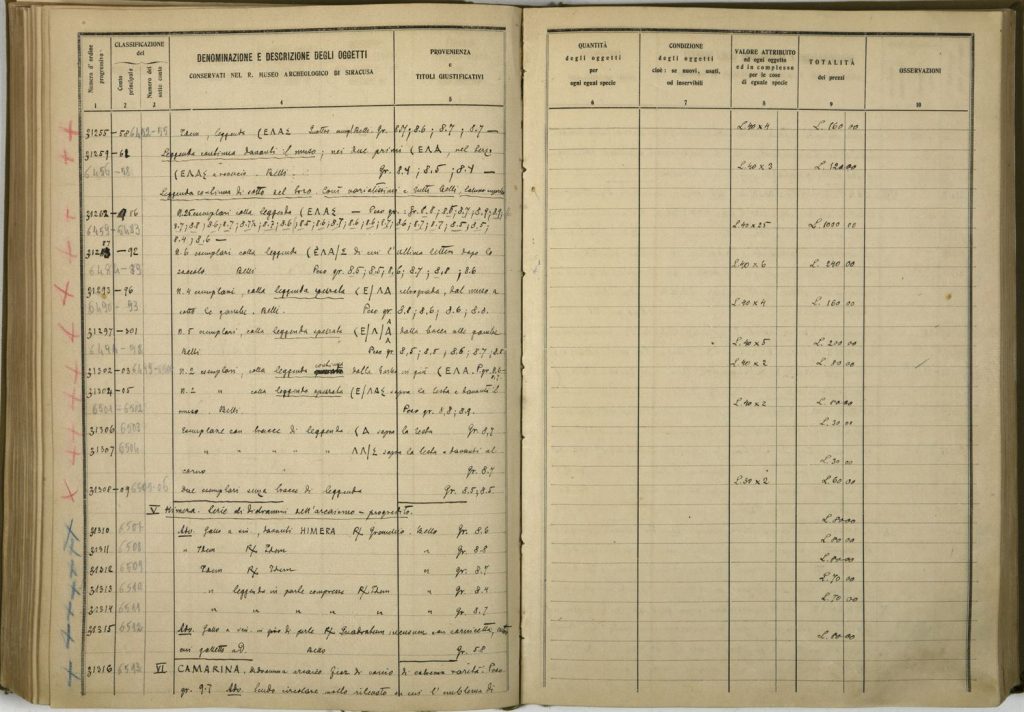 Numero d'ordine progressivo
CLASSIFICAZIONE
del
Conto principale
Numero del sotto conto
DENOMINAZIONE E DESCRIZIONE DEGLI OGGETTI
CONSERVATI NEL R. MUSEO ARCHEOLOGICO DI SIRACUSA
PROVENIENZA
e
TITOLI GIUSTIFICATIVI
1 2 3 4 5
31255 – 58 6452-55 Idem, leggenda (ΕΛΑΣ Gr. 8.7; 8.6; 8.7; 8.7 –
31259 – 61 Leggenda continua davanti il muso; nei due primi (ΕΛΑ, nel terzo
6456 – 58 (ΕΛΑΣ a rovescio. Belli. Gr. 8.4; 8.5; 8.4 –
Leggenda continua di sotto del toro. Conii
31262 – 86 N. 25 esemplari colla leggenda (ΕΛΑΣ – Peso gr.
6459-6483
8.4; 8.6 –
31287 – 92 N. 6 esemplari colla leggenda (ΕΛΑ/Σ di cui l'ultima lettera dopo lo
6484 – 89 Belli Peso gr. 8.5; 8.5; 8.6; 8.7; 8.8; 8.6
31293 – 96 N. 4 esemplari, colla leggenda spezzata (Ε/ΛΑ retrograda, dal muso a
6490 – 93 sotto le gambe. Belli. Peso gr. 8.8; 8.6; 8.6; 8.8.
31297 – 301 N. 5 esemplari, colla leggenda spezzata (Ε/Λ/Α dalla bocca alle gambe
6494 – 98 Belli Peso gr. 8.5; 8.5; 8.6; 8.7; 8.8
31302 – 03 N. 2 esemplari, colla leggenda continua dalla bocca in giù (ΕΛΑ. P. gr. 8.6 –
31304 – 05 N. 2 " colla leggenda spezzata (Ε/ΛΑΣ sopra la testa e davanti il
6501 – 6502 muso. Belli. Peso gr. 8.8; 8.9.
31306 6503 Esemplare con tracce di leggenda (Α sopra la testa Gr. 8.7
31307 6504 " " " " ΛΑ/Σ sopra la testa e davanti al
corno Gr. 8.7
31308 – 09 6505-06 Due esemplari senza tracce di leggenda Gr. 8.5; 8.5
V Himera. Serie di didrammi dell'arcaismo – progredito.
31310 6507 Adv. Gallo a sin., davanti HIMERA R/ Geometrico. Bello Gr. 8.6
31311 6508 " Idem R/ Idem " Gr. 8.8
31312 6509 Idem R/ Idem " Gr. 8.7
31313 6510 " leggenda in parte compressa R/ Idem " Gr. 8.4
31314 6511 " " " " " Gr. 8.7
31315 6512 Adv. Gallo a sin. in giro di perle R/ Quadratum incusum con cornicetta, entro
cui galletto a D. Bello Gr. 5.8
31316 6513 VI CAMARINA. Didramma arcaico fior di conio di estrema rarità. Peso
gr. 9.7 Adv. Scudo circolare molto rilevato su cui l'emblema di
QUANTITÀ
degli oggetti
per
ogni eguale specie
CONDIZIONE
degli oggetti
cioè: se nuovi, usati,
od inservibili
VALORE ATTRIBUITO
ad ogni oggetto
ed in complesso
per le cose
di eguale specie
TOTALITÀ
dei prezzi
OSSERVAZIONI
6 7 8 9 10
L. 40 x 4 L. 160 00
L. 40 x 3 L. 120 00
L. 40 x 25 L. 1000 00
L. 40 x 6 L. 240 00
L. 40 x 4 L. 160 00
L. 40 x 5 L. 200 00
L. 40 x 2 L. 80 00
L. 40 x 2 L. 80 00
L. 30 00
L. 30 00
L. 30 x 2 L. 60 00
L. 80 00
L. 80 00
L. 80 00
L. 70 00
L. 70 00
L. 80 00